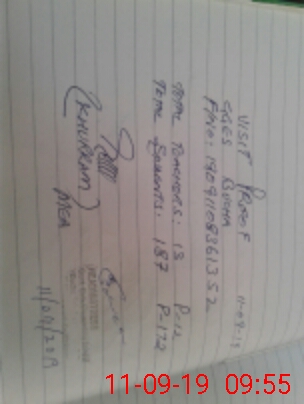 VISIT PROOF 11-09-19
GGES BUCHA
F/NO: 19091108361352
TOTAL TEACHERS: 13 P-12
TOTAL STUDENTS: 187 P-172
(KHURRAM)
MEA
11/09/2019
11-09-19 09:55